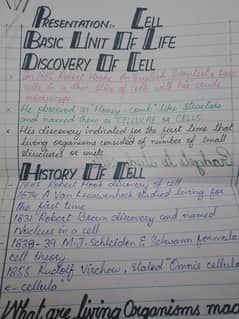 PRESENTATION:- CELL
BASIC UNIT OF LIFE
DISCOVERY OF CELL
In 1665 Robert Hooke, An English Scientist, saw
cells in a thin slice of cork with his crude
microscope.
He observed as "Honey-comb" like structure
and named them as CELLULAE or CELLS.
His discovery indicated for the first time that
living organisms consisted of number of Small
structures or units.
HISTORY OF CELL
- 1665 Robert Hook discovery of cell
- 1674 A Van Leeuwenhoek studied living for
the first time
- 1831 Robert Brown discovery and named
Nucleus in a cell
- 1838-39 M.J. Schleiden & Schwann formula
cell theory.
- 1855 Rudolf Virchow, stated "Omnis cellula
e-cellula"
What are living Organisms mad